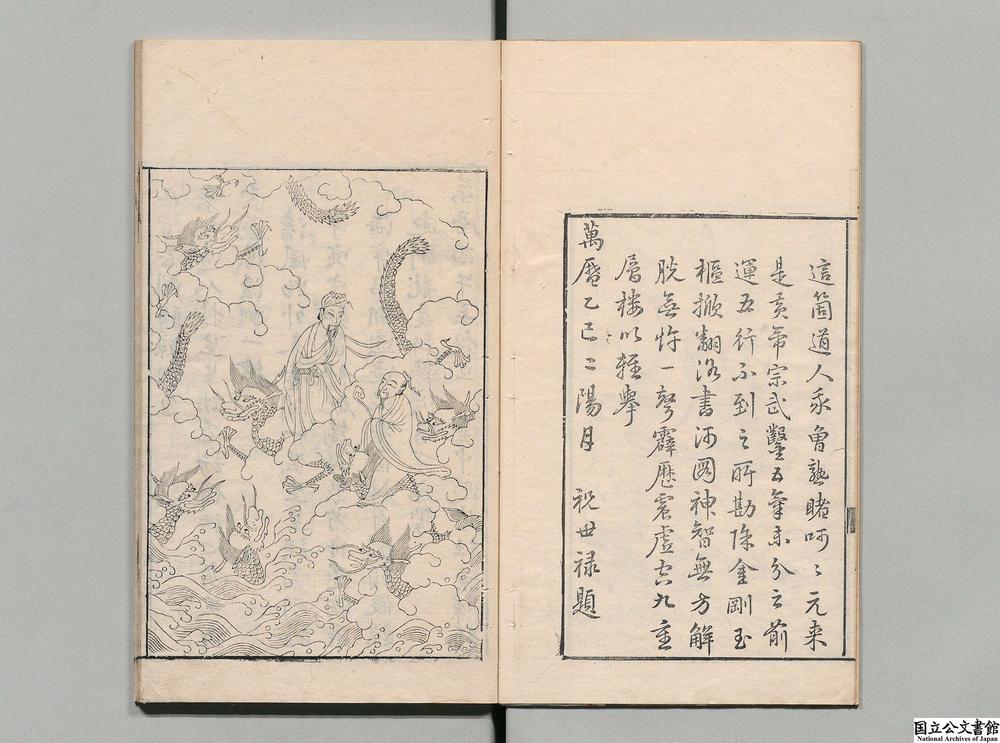 這箇道人我曾熟睹呵〻元来
是黃帝宗武鑿五氣未分之前
運五行不到之所勘除金剛玉
樞掀翻洛書河圖神智無方解
脫無忤一聲霹歷震虛空九重
層樓以輕舉
萬曆乙巳二陽月 祝世祿題
国立公文書館
National Archives of Japan